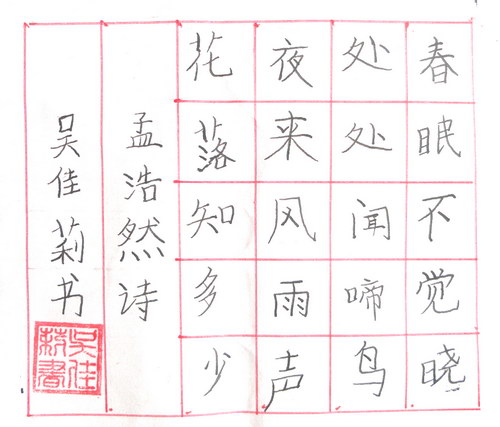 春眠不觉晓
处处闻啼鸟
夜来风雨声
花落知多少
孟浩然诗
吴佳莉书
吴佳
莉書